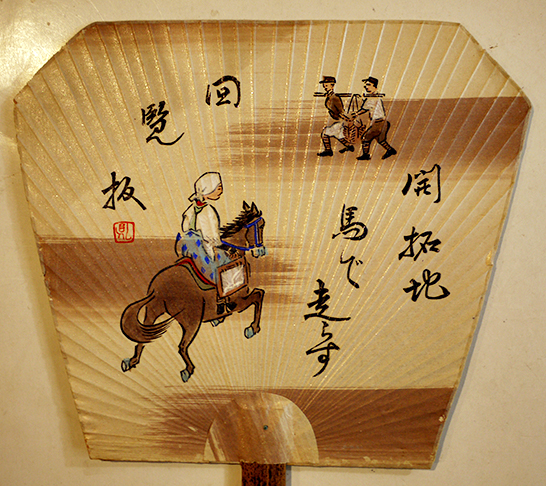 開拓地
馬で
走らす
回
覧
板